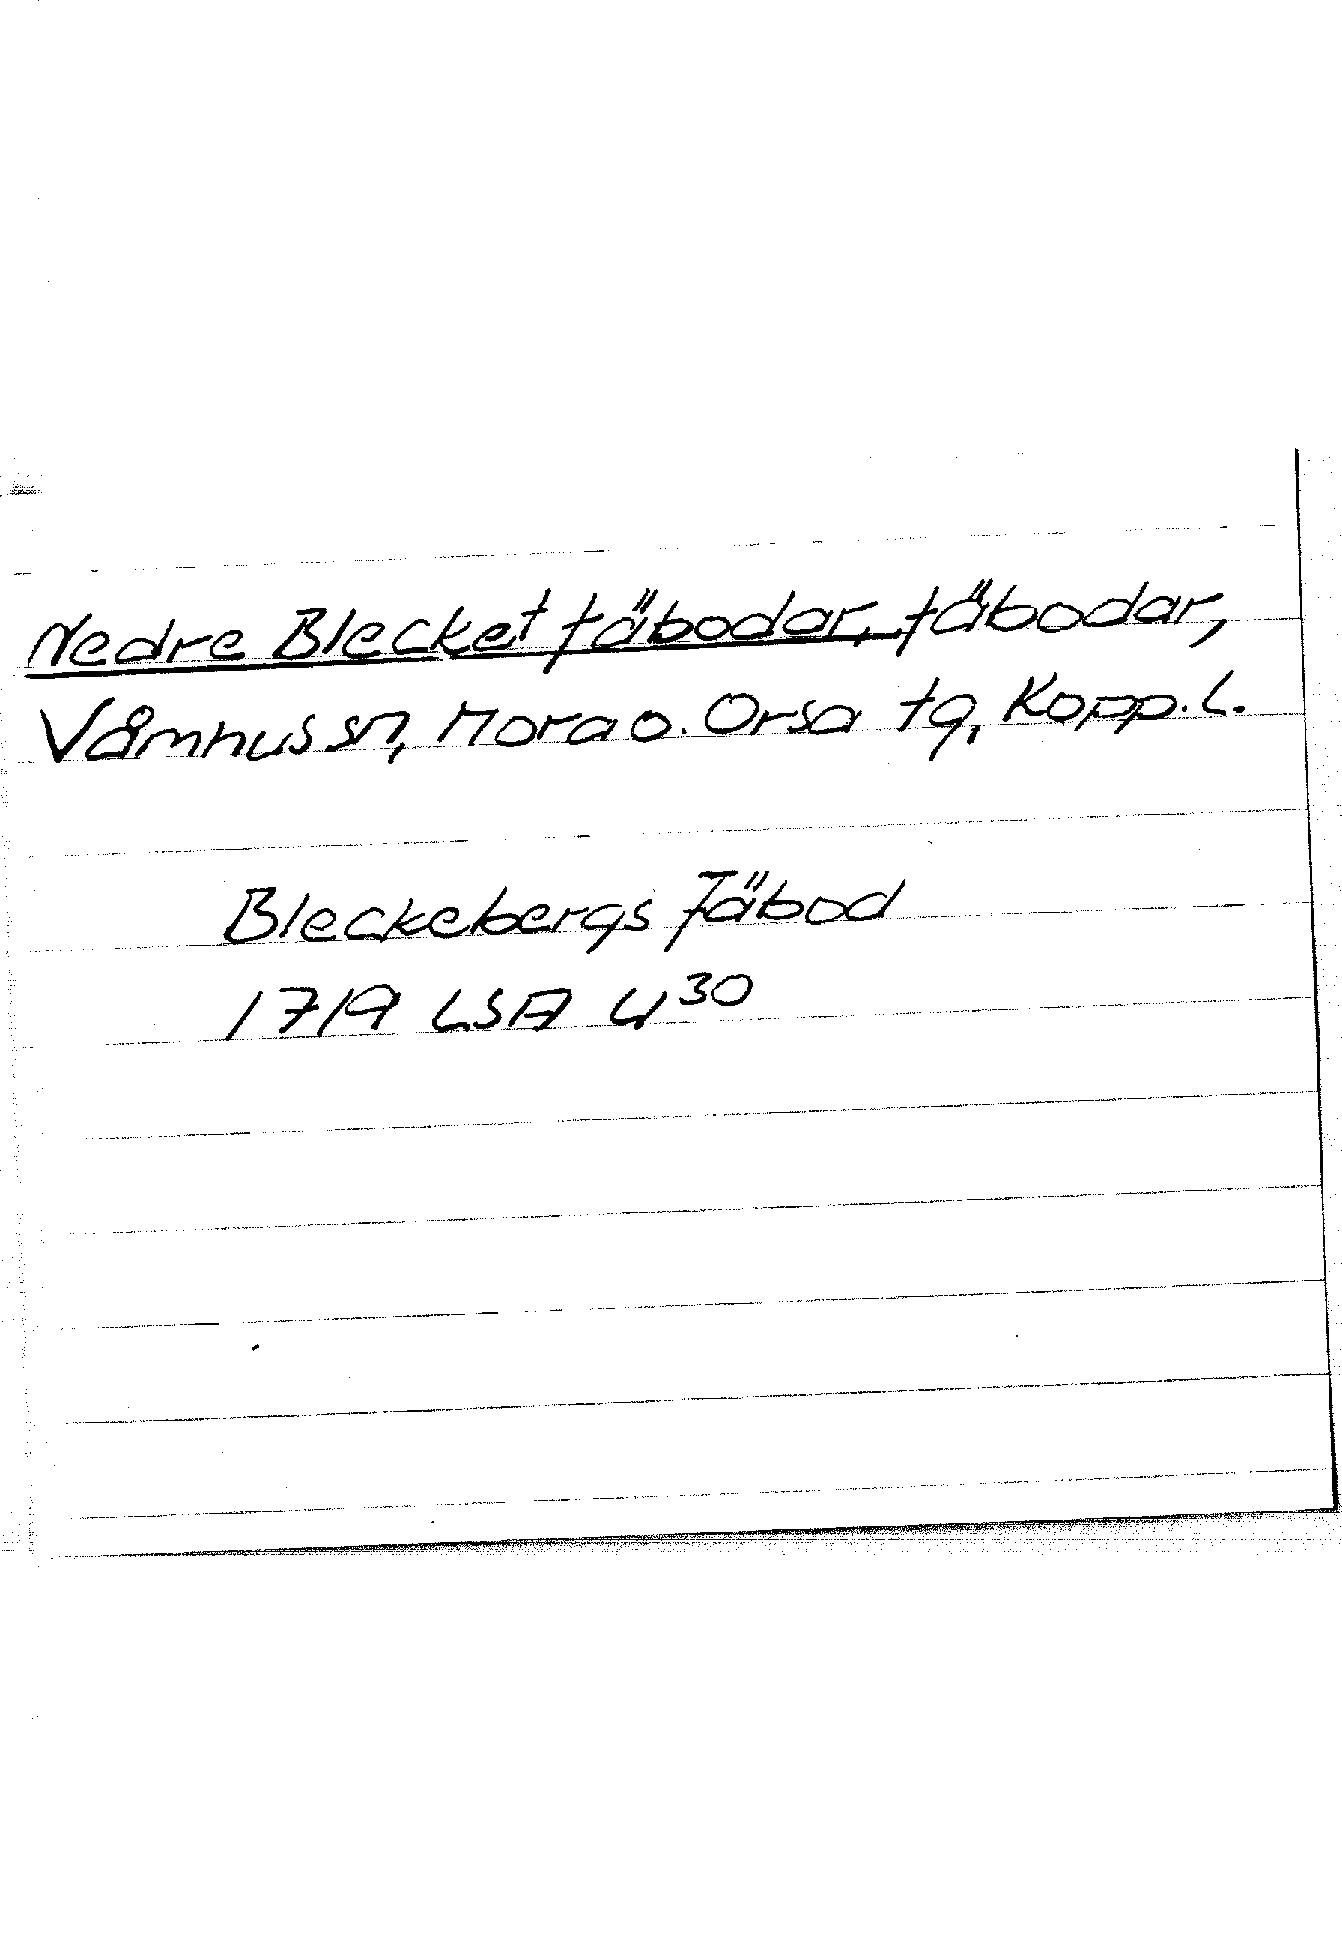 Nedre Blecket fäbodar, fäbodar,
Våmhus sn, Mora o. Orsa tg, Kopp. L.
Bleckebergs Fäbod
1719 LSA U³⁰